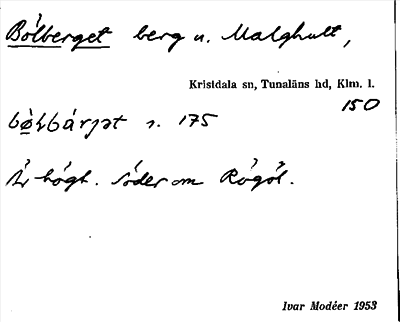 Bölberget berg u. Malghult,
Kristdala sn, Tunaläns hd, Klm. l.
150
bø̀lbárjət s. 175
Är högt. söder om Rögöl.
Ivar Modéer 1953